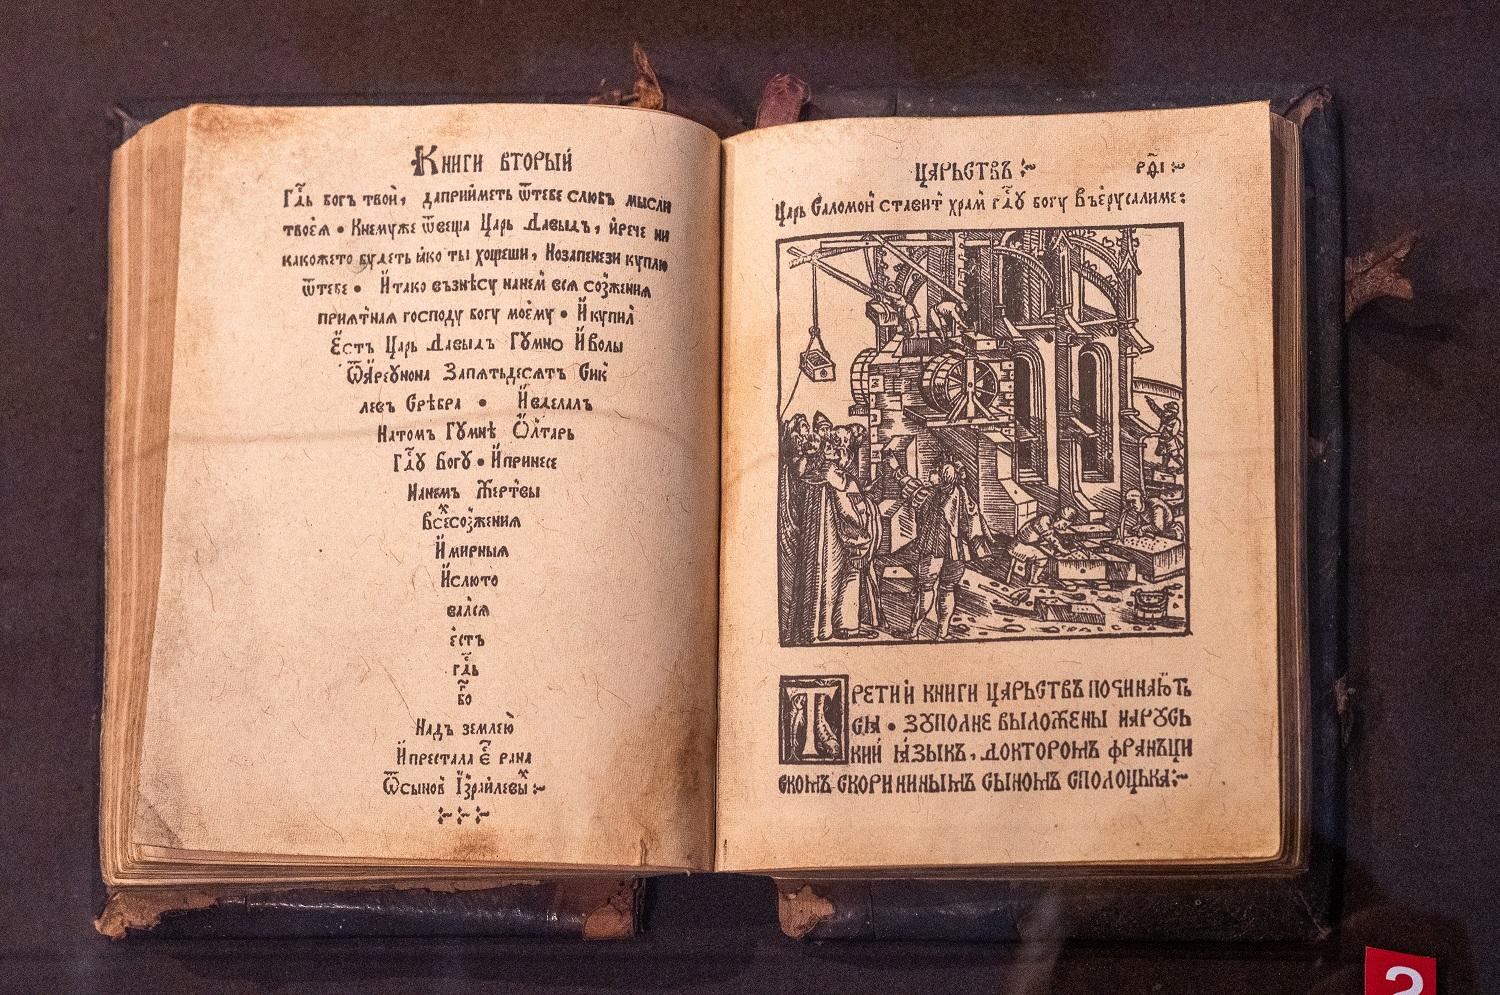 Книги вторыи
Гдⷭ҇ь богъ твои҆, даприи҆меть ѿтебе слюбъ мысли
твоея҆ • Кнемуже ѿвеща Царь Давыдъ, и҆рече ни
какожето будеть и҆ако ты хощеши, Нозапенези куплю
ѿтебе • И҆тако възнѣсу нанем вся созжения
прия҆тная господу богу моѐму • И҆купил
Е҆стъ Царь Давыдъ Гꙋмно И҆волы
ѾА҆реꙋнона Запятьдесятъ Сик
левъ Срѣбра • И҆вделалъ
Натомъ Гꙋмнѣ Ѻ҆лтарь
Гдⷭ҇ꙋ Богꙋ • И҆принесе
Нанемъ Жертвы
Всесозжения
И҆мирныя
И҆слюто
вался
е҆стъ
гдⷭ҇ь
бо
Надъ землею
И҆престала Е҆ рана
Ѿсынов І҆зраилевыⷯ :~
царьствъ :~ рѳ҃і :~
Царь Саломон ставит храм гдⷭ҇ꙋ богу Въе҆русалиме:
Трети и҆ книги царьствъ починаю҆ть
сꙗ • зꙋполне выложены нарꙋсь
кии ꙗ҆зыкъ, докторомъ франъци
скомъ скорининымъ сыномъ сполоцька:~
2